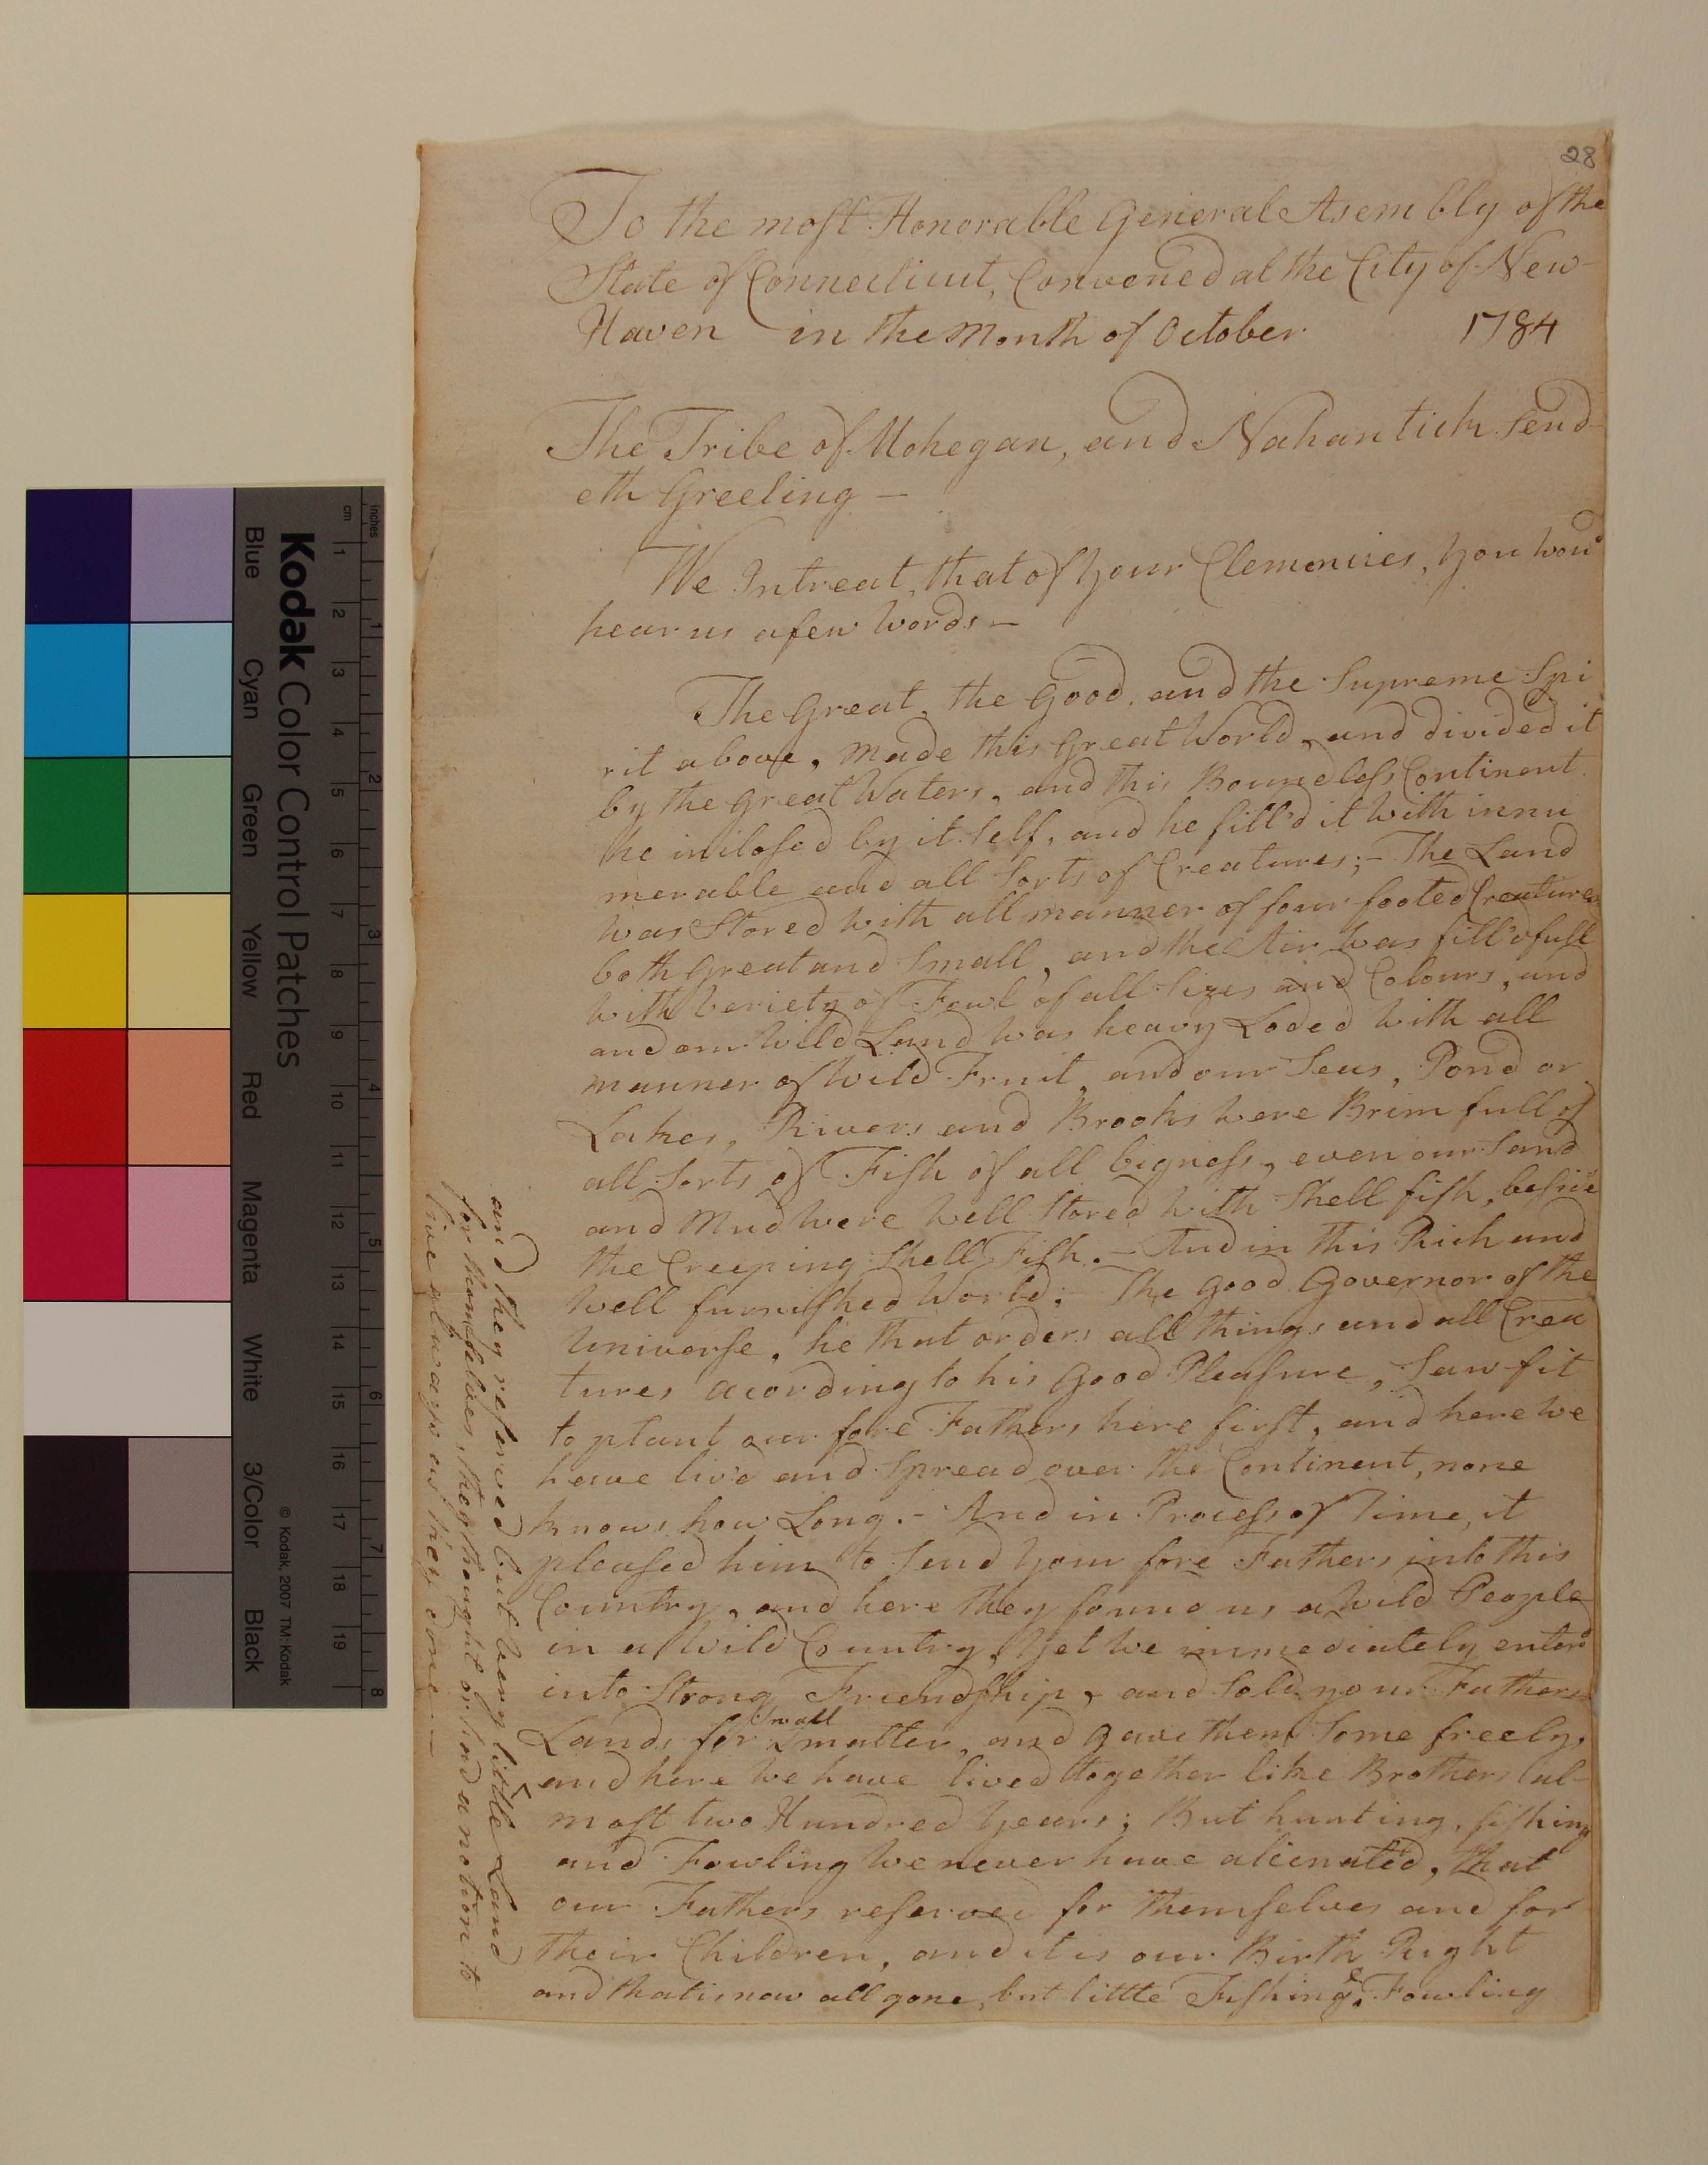 28
To the most Honorable General Asembly of the
State of Connecticut, Convened at the City of New
Haven in the Month of October 1784
The Tribe of Mohegan, and Nahantick Send-
eth Greeting —
We Intreat, that of your Clemencies, you wou'd
hear us a few Words —
The Great, the Good, and the Supreme Spi
rit above, made this Great World, and divided it
by the great Waters, and this Boundless Continent
he inclosed by it Self, and he fill'd it with innu
merable and all Sorts of Creatures; - The Land
was Stored with all manner of four footed Creatures
both Great and Small, and the Air was fill'd full
with Veriety of Fowl of all Sizes and Colours, and
and our Wild Land was heavy Loded with all
manner of Wild Fruit, and our Seas, Pond or
Lakes, Rivers and Brooks were Brim full of
all Sorts of Fish of all bigness, even our Sand
and Mud were well Stored with Shell fish, beside
the Creeping Shell Fish. — And in this Rich and
well furnished World; The good Governor of the
Universe, he that orders all things and all Crea
tures acording to his Good Pleasure, Saw fit
to plant our fore Fathers here first, and here we
have liv'd and Spread over the Continent, none
knows how Long. - And in Process of Time, it
pleased him to Send your fore Fathers into this
Country, and here they found us a Wild People
in a Wild Country, Yet we immediately enterd
into Strong Friendship, and Sold your Fathers
Small
Lands for Smatter, and gave them Some freely,
and here we have lived together like Brothers al-
most two Hundred years; But hunting, fishing
and Fowling we never have alienated, that
our Fathers reserved for themselves and for
their Children, and it is our Birth Right
and that is now all gone, but little Fishing & Fowling
and they reserved but very little Land
for themselves, they thought or had a notion to
live always as they done —
Kodak Color Control Patches
© Kodak, 2007 TM: Kodak
Blue Cyan Green Yellow Red Magenta White 3/Color Black
inches 1 2 3 4 5 6 7 8
cm 1 2 3 4 5 6 7 8 9 10 11 12 13 14 15 16 17 18 19